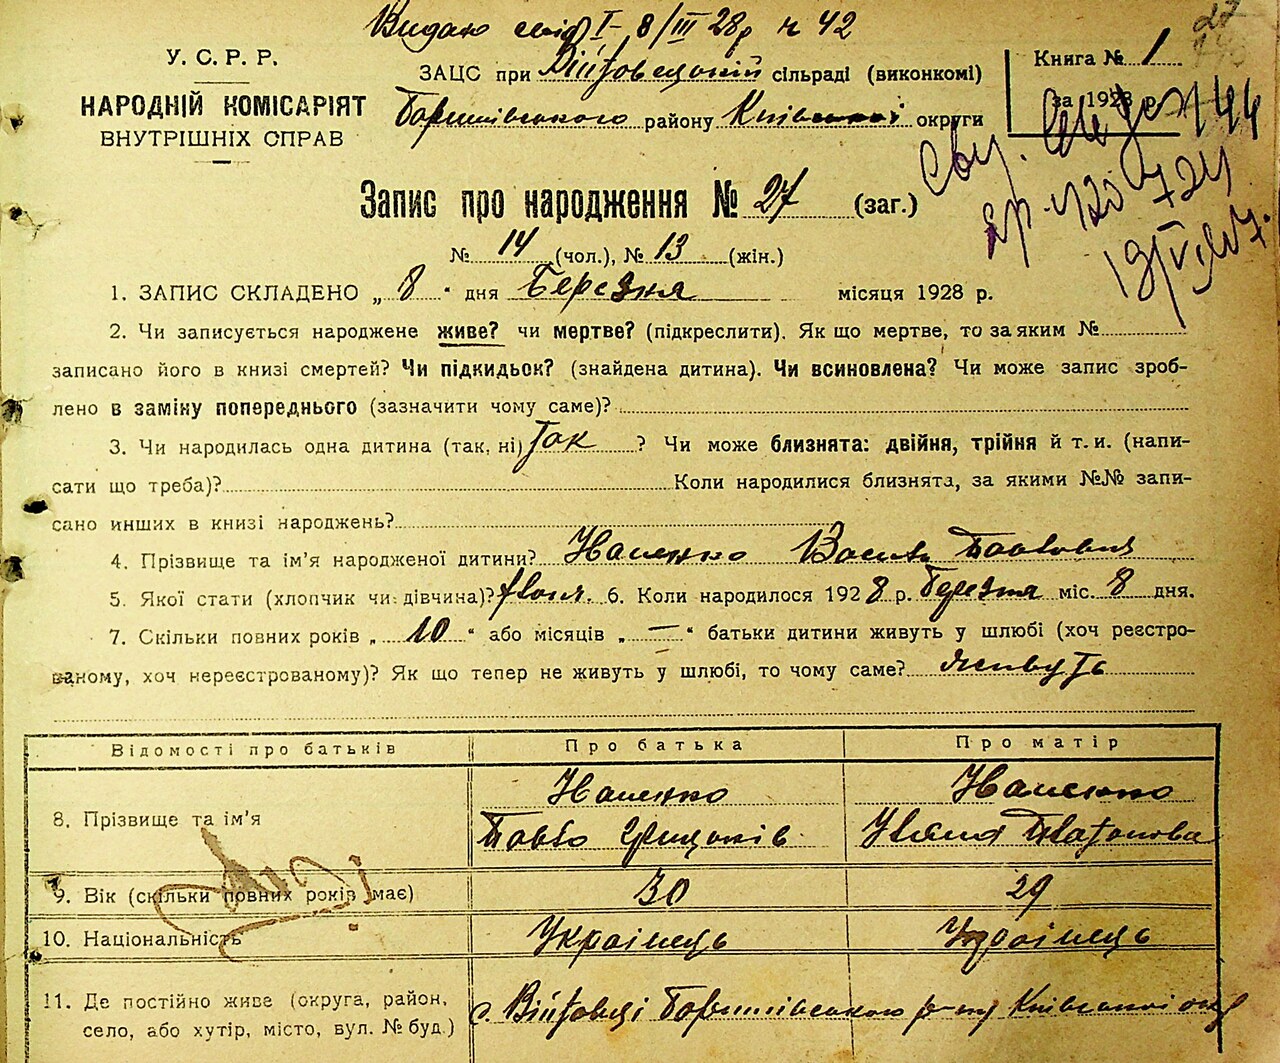 Видано свід I-8/III 28р ч 42
У. С. Р. Р.
НАРОДНІЙ КОМІСАРІЯТ
ВНУТРІШНІХ СПРАВ
ЗАЦС при Війтовецькій сільраді (виконкомі)
Баришівського району Київської округи
Книга № 1
за 1928 р
Запис про народження № 27 (заг.)
№ 14 (чол.), № 13 (жін.)
1. ЗАПИС СКЛАДЕНО „ 8 “ дня Березня місяця 1928 р.
2. Чи записується народжене живе? чи мертве? (підкреслити). Як що мертве, то за яким №
записано його в книзі смертей? Чи підкидьок? (знайдена дитина). Чи всиновлена? Чи може запис зроб-
лено в заміку попереднього (зазначити чому саме)?
3. Чи народилась одна дитина (так, ні) Так ? Чи може близнята: двійня, трійня й т. и. (напи-
сати що треба)? Коли народилися близнята, за якими №№ запи-
сано инших в книзі народжень?
4. Прізвище та ім’я народженої дитини? Іваненко Василь Павлович
5. Якої стати (хлопчик чи дівчина)? 6. Коли народилося 1928 р. Березня міс. 8 дня.
7. Скільки повних років „ 10 “ або місяців „ — “ батьки дитини живуть у шлюбі (хоч реєстро-
ваному, хоч нереєстрованому)? Як що тепер не живуть у шлюбі, то чому саме? живуть
Відомості про батьків Про батька Про матір
8. Прізвище та ім’я Іваненко Павло Іваненко Уляна Платонова
9. Вік (скільки повних років має) 30 29
10. Національність Українець Українець
11. Де постійно живе (округа, район,
село, або хутір, місто, вул. № буд.) с. Війтовці Баришівського р-ну Київської окр